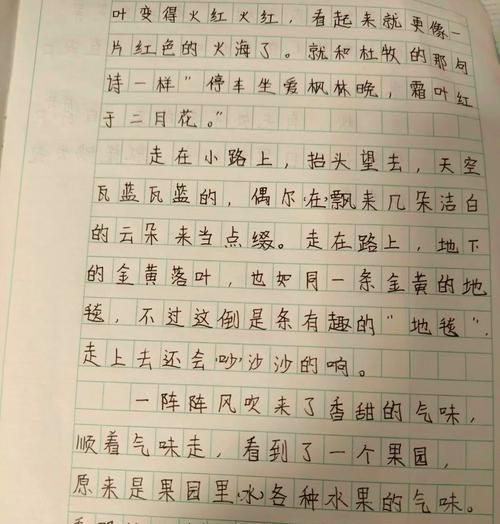 叶变得火红火红，看起来就更像一
片红色的火海了。就和杜牧的那句
诗一样"停车坐爱枫林晚，霜叶红
于二月花。"
走在小路上，抬头望去，天空
瓦蓝瓦蓝的，偶尔(在)飘来几朵洁白
的云朵来当点缀。走在路上，地下
的金黄落叶，也如同一条金黄的地
毯，不过这倒是条有趣的"地毯"，
走上去还会(吵)沙沙的响。
一阵阵风吹来了香甜的气味，
顺着气味走，看到了一个果园，
原来是果园里(水)各种水果的气味。